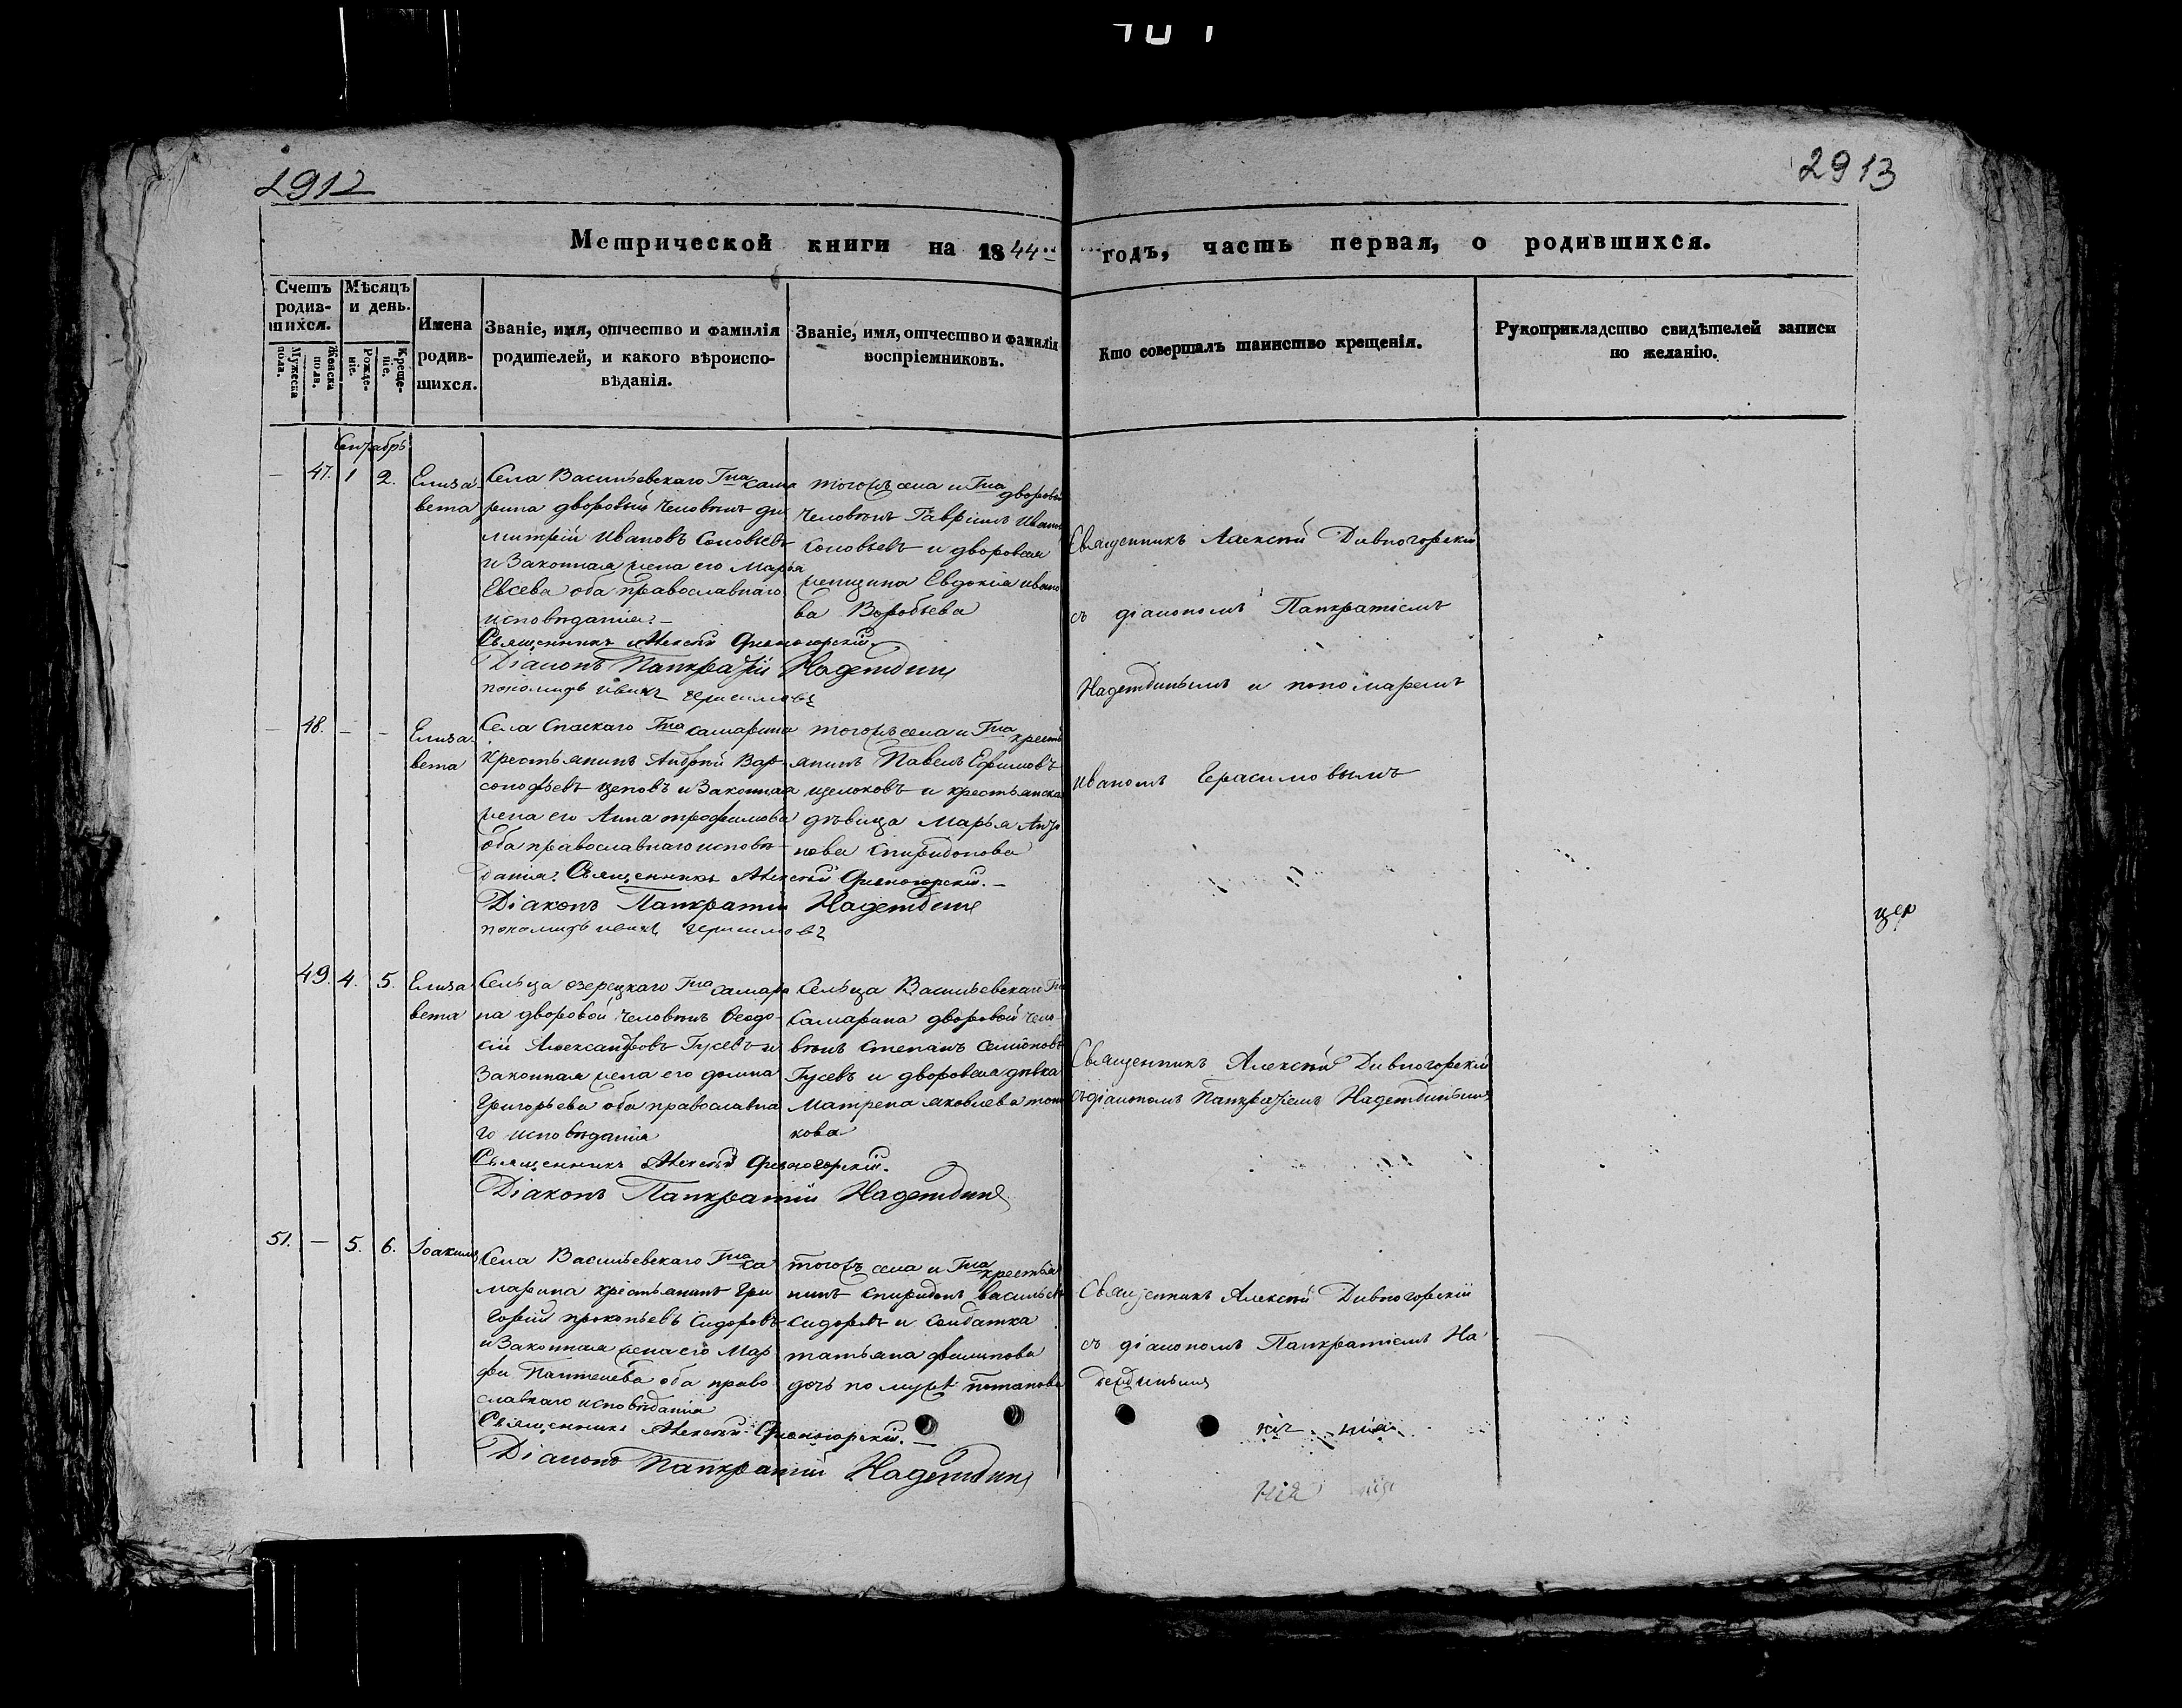 2912
2913
Метрической книги на 1844 годъ, часть первая, о родившихся.
Счетъ родившихся.
Мужеска пола.
Женска пола.
Мѣсяцъ и день.
Рожденіе.
Крещеніе.
Имена родившихся.
Званіе, имя, отчество и фамилія
родителей, и какого вѣроиспо-
вѣданія.
Званіе, имя, отчество и фамилія
воспріемниковъ.
Кто совершалъ таинство крещенія.
Рукоприкладство свидѣтелей записи
по желанію.
Сентябрь
— 47. 1 2.
Елиза-
вета
Села Васильевскаго Гна Сама
рина дворовый человѣкъ ди
митрій Ивановъ Соловьевъ
и Законная жена его Марья
Евсева оба православнаго
исповѣданія.—
Священникъ Алексѣй Дивногорскій
Діаконъ Панкратій Надеждинъ
пономарь Иванъ Герасимовъ
тогожъ села и Гна дворовый
человѣкъ Гавріилъ Иванъ
Соловьевъ и дворовая
женщина Евдокія ивано
ва Воробьева
Священникъ Алексѣй Дивногорскій
съ діакономъ Панкратіемъ
Надеждинымъ и пономаремъ
Иваномъ Герасимовымъ
— 48. — —
Елиза-
вета
Села Спаскаго Гна Самарина
Крестьянинъ Андрей Вар
сонофьевъ и Законная
жена его Анна трофимова
оба православнаго исповѣ-
данія. Священникъ Алексѣй Дивногорскій.—
Діаконъ Панкратій Надеждинъ
пономарь Иванъ Герасимовъ
тогожъ села и Гна кресть
янинъ Павелъ Ефимовъ
щелоковъ и крестьянска
дѣвица Марья
нова Спиридонова
49. 4. 5.
Елиза
вета
Сельца озерецкаго Гна Самари
на дворовой человѣкъ Ѳеодо-
сій Александровъ Гусевъ и
Законная жена его домна
Григорьева оба православна
го исповѣданія
Священникъ Алексѣй Дивногорскій.
Діаконъ Панкратій Надеждинъ
Сельца Васильевскаго Гна
Самарина дворовой чело-
вѣкъ Степанъ Семіоновъ
Гусевъ и дворовая дѣвка
Матрена яковлева
кова
Священникъ Алексѣй Дивногорскій
съ діакономъ Панкратіемъ Надеждинымъ
51. — 5. 6.
Іоакимъ
Села Васильевскаго Гна Са
марина крестьянинъ Гри
горій прокопьевъ Сидоровъ
и Законная жена его Мар
фа Пантелева оба право
славнаго исповѣданія
Священникъ Алексѣй Дивногорскій.—
Діаконъ Панкратій Надеждинъ
тогожъ села и Гна крестья
нинъ Спиридонъ Васильевъ
Сидоровъ и Солдатка
татьяна филипова
дочь по мужѣ потапова
Священникъ Алексѣй Дивногорскій
съ діакономъ Панкратіемъ На
деждинымъ
нія